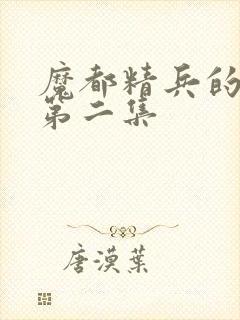 魔都精兵的
第二集
唐漠葉